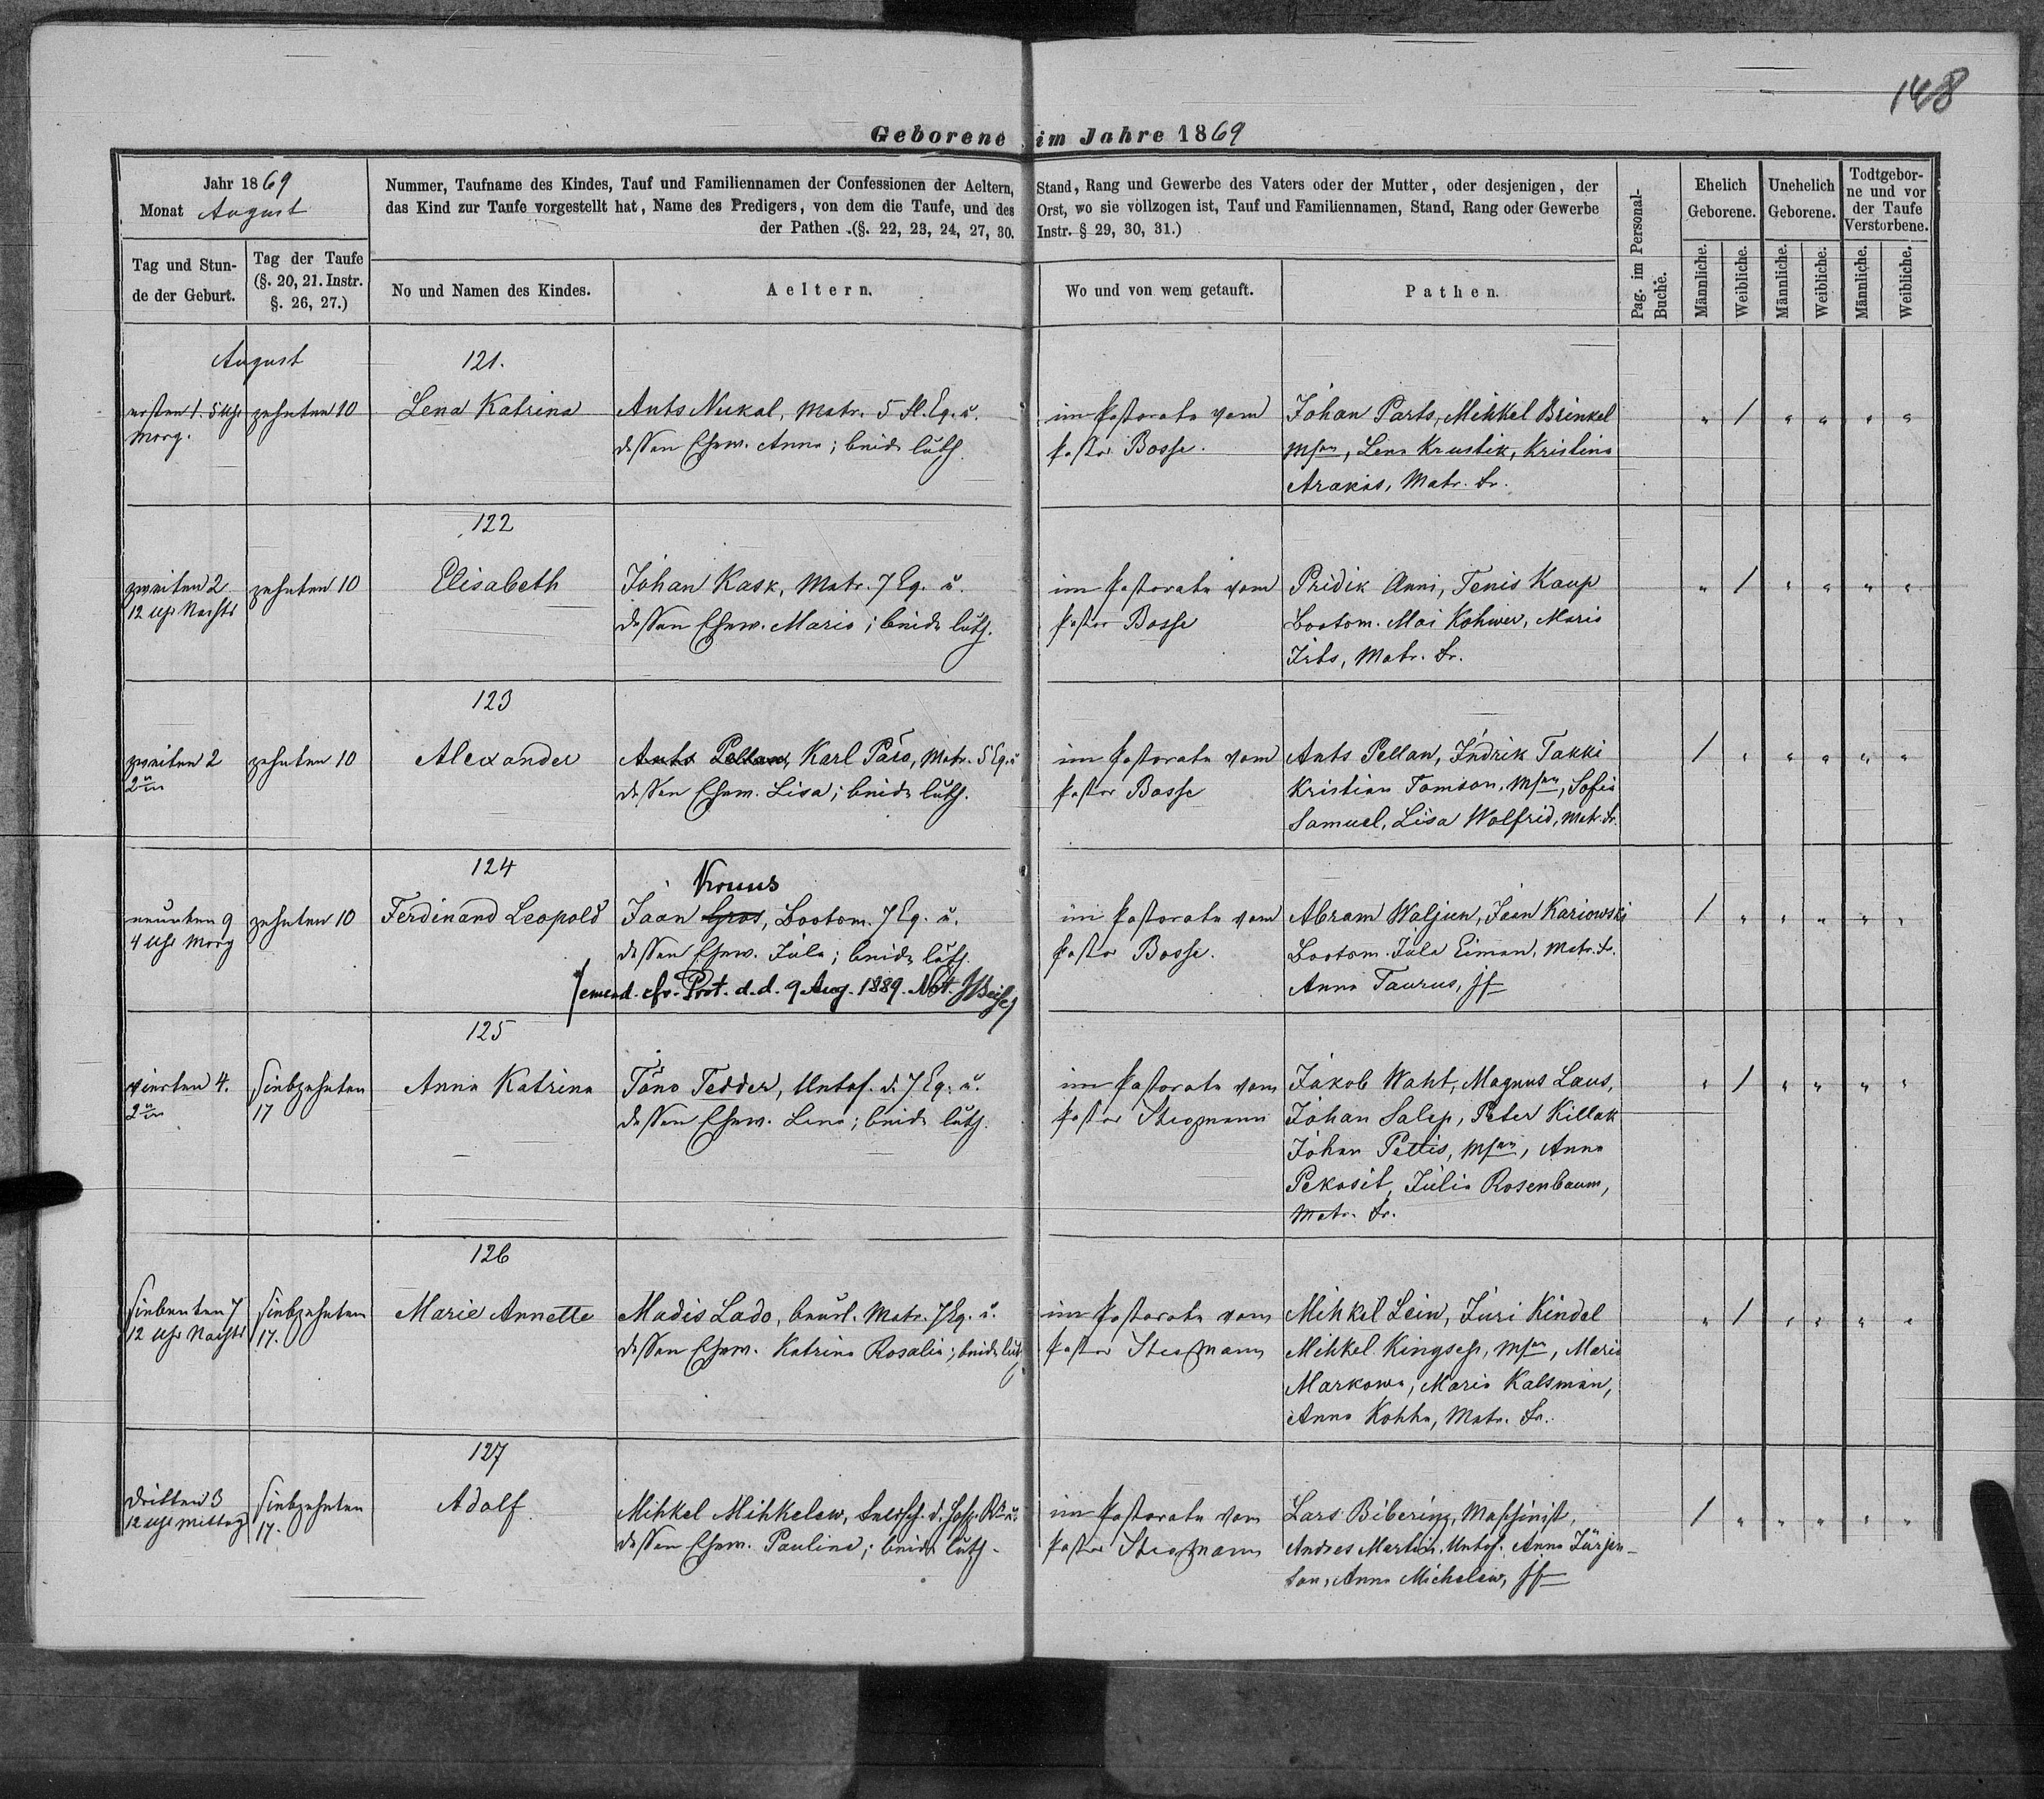 148
Geborene im Jahre 1869
Jahr 1869
Monat August
Nummer, Taufname des Kindes, Tauf und Familiennamen der Confessionen der Aeltern,
das Kind zur Taufe vorgestellt hat, Name des Predigers, von dem die Taufe, und des
der Pathen .(§. 22, 23, 24, 27, 30.
Stand, Rang und Gewerbe des Vaters oder der Mutter, oder desjenigen, der
Orst, wo sie vollzogen ist, Tauf und Familiennamen, Stand, Rang oder Gewerbe
Instr. § 29, 30, 31.)
Pag. im Personal-
Buche.
Ehelich
Geborene.
Unehelich
Geborene.
Todtgebor-
ne und vor
der Taufe
Verstorbene.
Tag und Stun-
de der Geburt.
Tag der Taufe
(§. 20, 21. Instr.
§. 26, 27.)
No und Namen des Kindes.
Aeltern.
Wo und von wem getauft.
Pathen.
Männliche.
Weibliche.
Männliche.
Weibliche.
Männliche.
Weibliche.
August
121.
ersten 1. 5 Uhr
Morg.
zehnten 10
Lena Katrina
Ants Nukal, Matr. 5 Fl. Eq. u.
dessen Ehew. Anna; beide luth.
im Pastorate vom
Pastor Bosse.
Johan Parts, Mihkel Brinkel
Msen, Lena Krustik, Kristina
Arakas, Matr. Fr.
" / " " " "
122
zweiten 2
12 Uhr Nachts
zehnten 10
Elisabeth
Johan Kask, Matr. 7 Eq. u.
dessen Ehew. Marie; beide luth.
im Pastorate vom
Pastor Bosse
Pridik Anni, Tenis Kaup
Bootsm. Mai Kohwer, Marie
Irbs, Matr. Fr.
" / " " " "
123
zweiten 2
zehnten 10
Alexander
Ants Pellaw, Karl Päro, Matr. 5 Eq. u
dessen Ehew. Lisa; beide luth.
im Pastorate vom
Pastor Bosse
Ants Pellaw, Indrik Takki
Kristian Tomson, Msen, Sofia
Samuel, Lisa Wolfrid, Mat. Fr.
/ " " " " "
124
neunten 9
4 Uhr Morg
zehnten 10
Ferdinand Leopold
Kruus
Jaan Gros, Bootsm. 7 Eq. u.
dessen Ehew. Jula; beide luth.
emend. cfr. Prot. d. d. 9 Aug. 1889. Not.
im Pastorate vom
Pastor Bosse.
Abram Waljun, Jaan Kariowski
Bootsm. Jula Eiman, Matr. Fr.
Anna Taurus, Jf
/ " " " " "
125
vierten 4.
siebzehnten
17
Anna Katrina
Täno Tedder, Untof. d. 7 Eq. u.
dessen Ehew. Lena; beide luth.
im Pastorate vom
Pastor Stegmann
Jakob Waht, Magnus Laus,
Johan Salep, Peter Killak
Johan Pettis, Msen, Anna
Pekosit, Julia Rosenbaum,
Matr. Fr.
" / " " " "
126
siebenten 7
12 Uhr Nachts
siebzehnten
17.
Marie Annette
Madis Lado, beurl. Matr. 7 Eq. u.
dessen Ehew. Katrina Rosalia; beide luth
im Pastorate vom
Pastor Stegmann
Mihkel Lein, Juri Kindel
Mihkel Kingsep, Msen, Maria
Markowa, Maria Kalsman,
Anna Kohha, Matr. Fr.
" / " " " "
127
dritten 3
12 Uhr Mittag
siebzehnten
17.
Adolf
Mihkel Mihkelew,
dessen Ehew. Pauline; beide luth.
im Pastorate vom
Pastor Stegmann
Lars Bibering, Maschinist,
Andres Martin, Untof. Anna Jürgen-
son, Anna Michelew, Jf
/ " " " " "